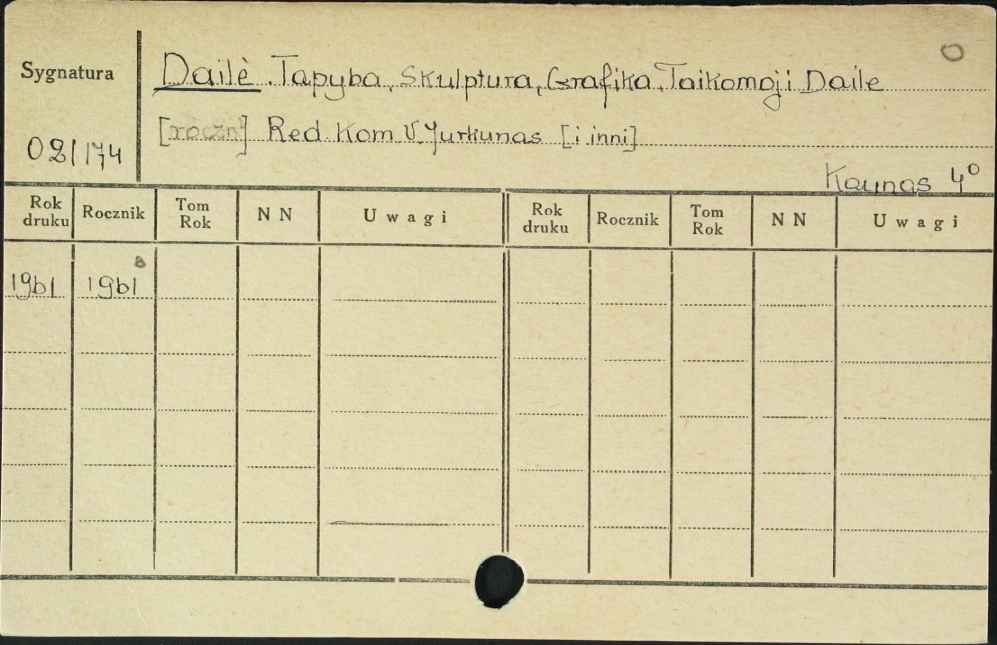 Sygnatura
Dailė. Tapyba, Skulptura, Grafika, Taikomoji Daile
[roczn] Red. Kom. V. Jurkunas [i inni]
02/174
Kaunas 4°
Rok druku Rocznik Tom Rok N N Uwagi Rok druku Rocznik Tom Rok N N Uwagi
1961 1961